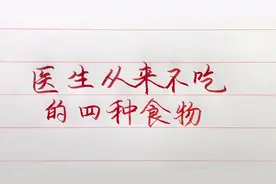 医生从来不吃
的四种食物